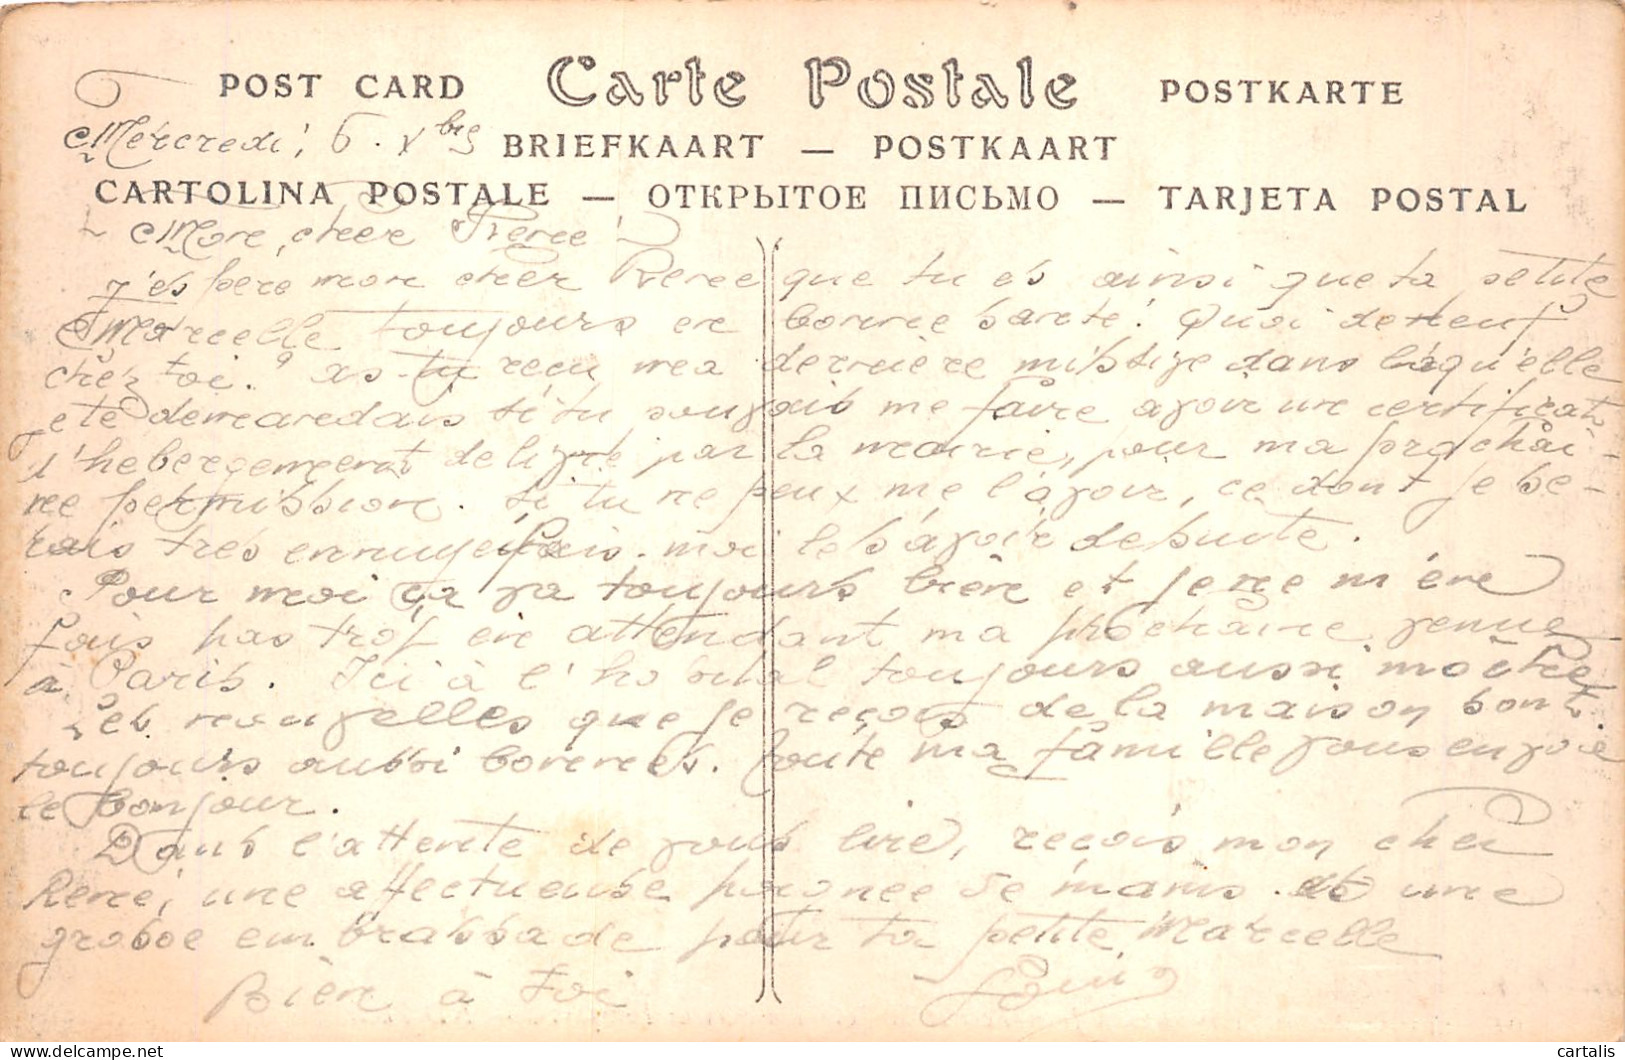 POST CARD Carte Postale POSTKARTE
Mercredi, 6. Xbre
BRIEFKAART — POSTKAART
CARTOLINA POSTALE — ОТКРЫТОЕ ПИСЬМО — TARJETA POSTAL
Mon cher René
J'espère mon cher René que tu es ainsi que ta petite
Marcelle toujours en bonne santé. Quoi de neuf
chez toi? as-tu reçu ma dernière missive dans laquelle
je te demandais si tu pouvais me faire avoir un certificat
d'hebergement delivré par la mairie, pour ma prochai-
ne permission. Si tu ne peux me l'avoir, ce dont je se-
rais très ennuyé fais-moi le savoir de suite.
Pour moi ça va toujours bien et je ne m'en
fais pas trop en attendant ma prochaine venue
à Paris. Ici à l'hopital toujours aussi
Les nouvelles que je reçois de la maison sont
toujours aussi bonnes. Toute ma famille vous envoie
le bonjour.
Dans l'attente de vous lire, reçois mon cher
René, une affectueuse poignée de mains et une
grosse embrassade pour ta petite Marcelle
Bien à toi Louis
cartalis